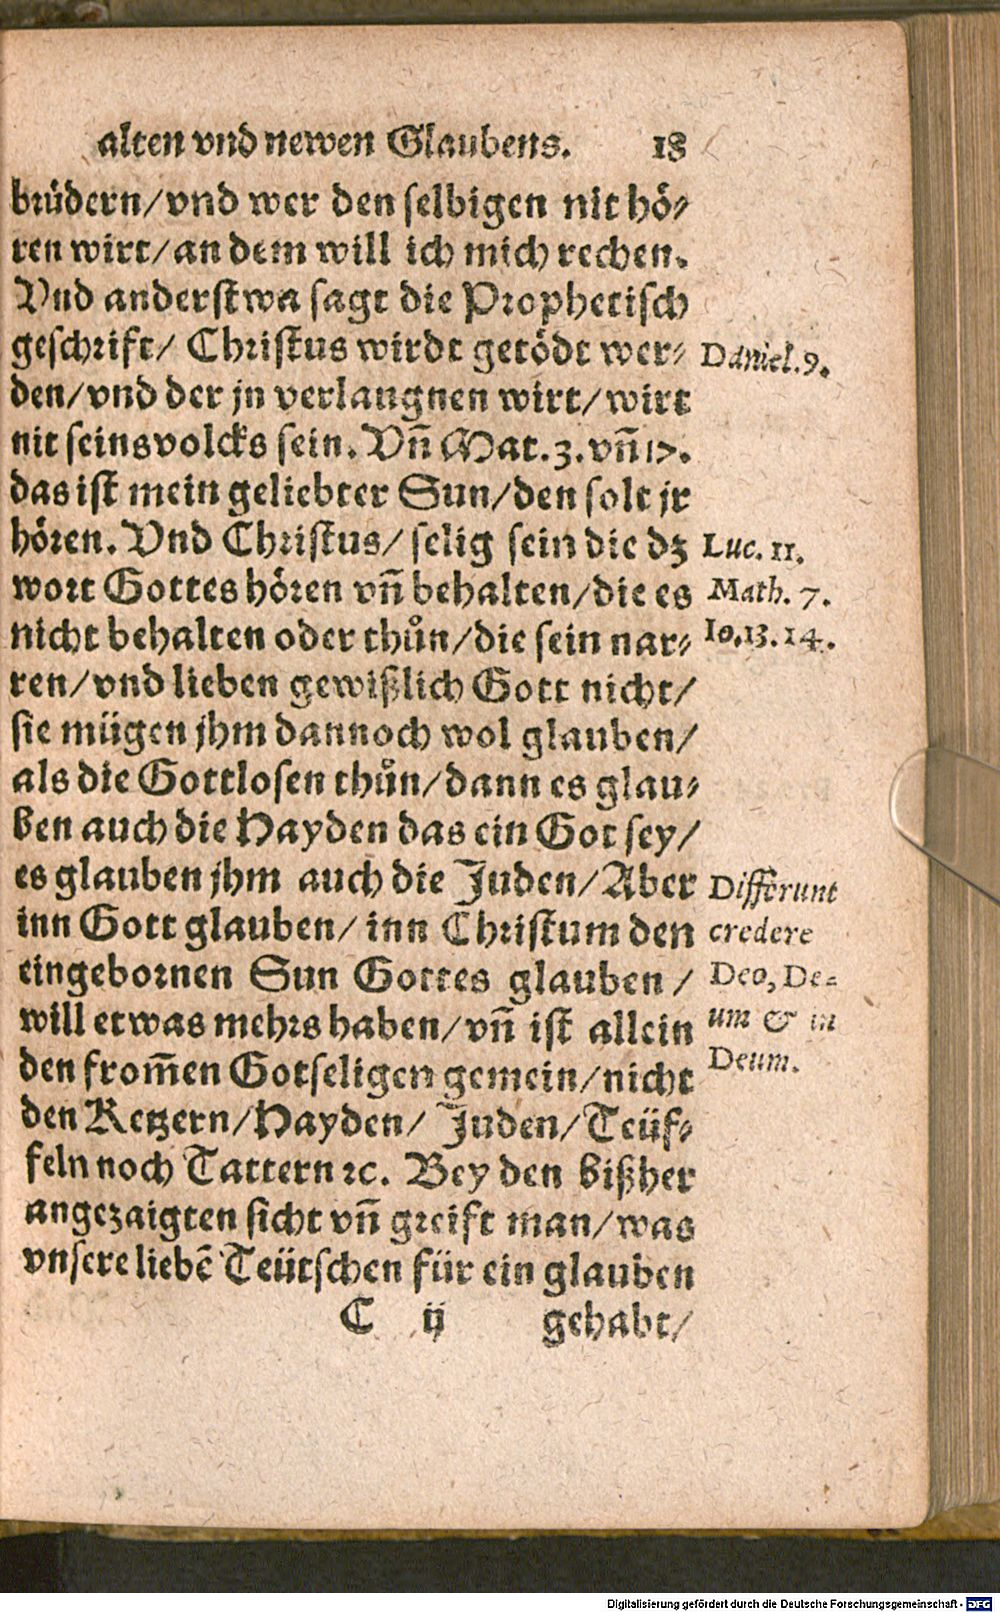 alten vnd newen Glaubens. 18
brüdern/vnd wer den selbigen nit hö⸗
ren wirt/an dem will ich mich rechen.
Vnd anderstwa sagt die Prophetisch
geschrift/ Christus wirdt getödt wer⸗
den/vnd der jn verlaugnen wirt/wirt
nit seins volcks sein. Vñ Mat. 3. vñ 17.
das ist mein geliebter Sun/den solt jr
hören. Vnd Christus/ selig sein die dz
wort Gottes hören vñ behalten/die es
nicht behalten oder thůn/die sein nar⸗
ren/vnd lieben gewißlich Gott nicht/
sie mügen jhm dannoch wol glauben/
als die Gottlosen thůn/dann es glau⸗
ben auch die Hayden das ein Got sey/
es glauben jhm auch die Juden/Aber
inn Gott glauben/ inn Christum den
eingebornen Sun Gottes glauben/
will etwas mehrs haben/vñ ist allein
den from̃en Gotseligen gemein/nicht
den Ketzern/Hayden/ Juden/Teüf⸗
feln noch Tattern ꝛc. Bey den bißher
angezaigten sicht vñ greift man/was
vnsere liebẽ Teütschen für ein glauben
C ij gehabt/
Daniel. 9.
Luc. 11.
Math. 7.
Io. 13. 14.
Differunt
credere
Deo, De-
um & in
Deum.
Digitalisierung gefördert durch die Deutsche Forschungsgemeinschaft - DFG